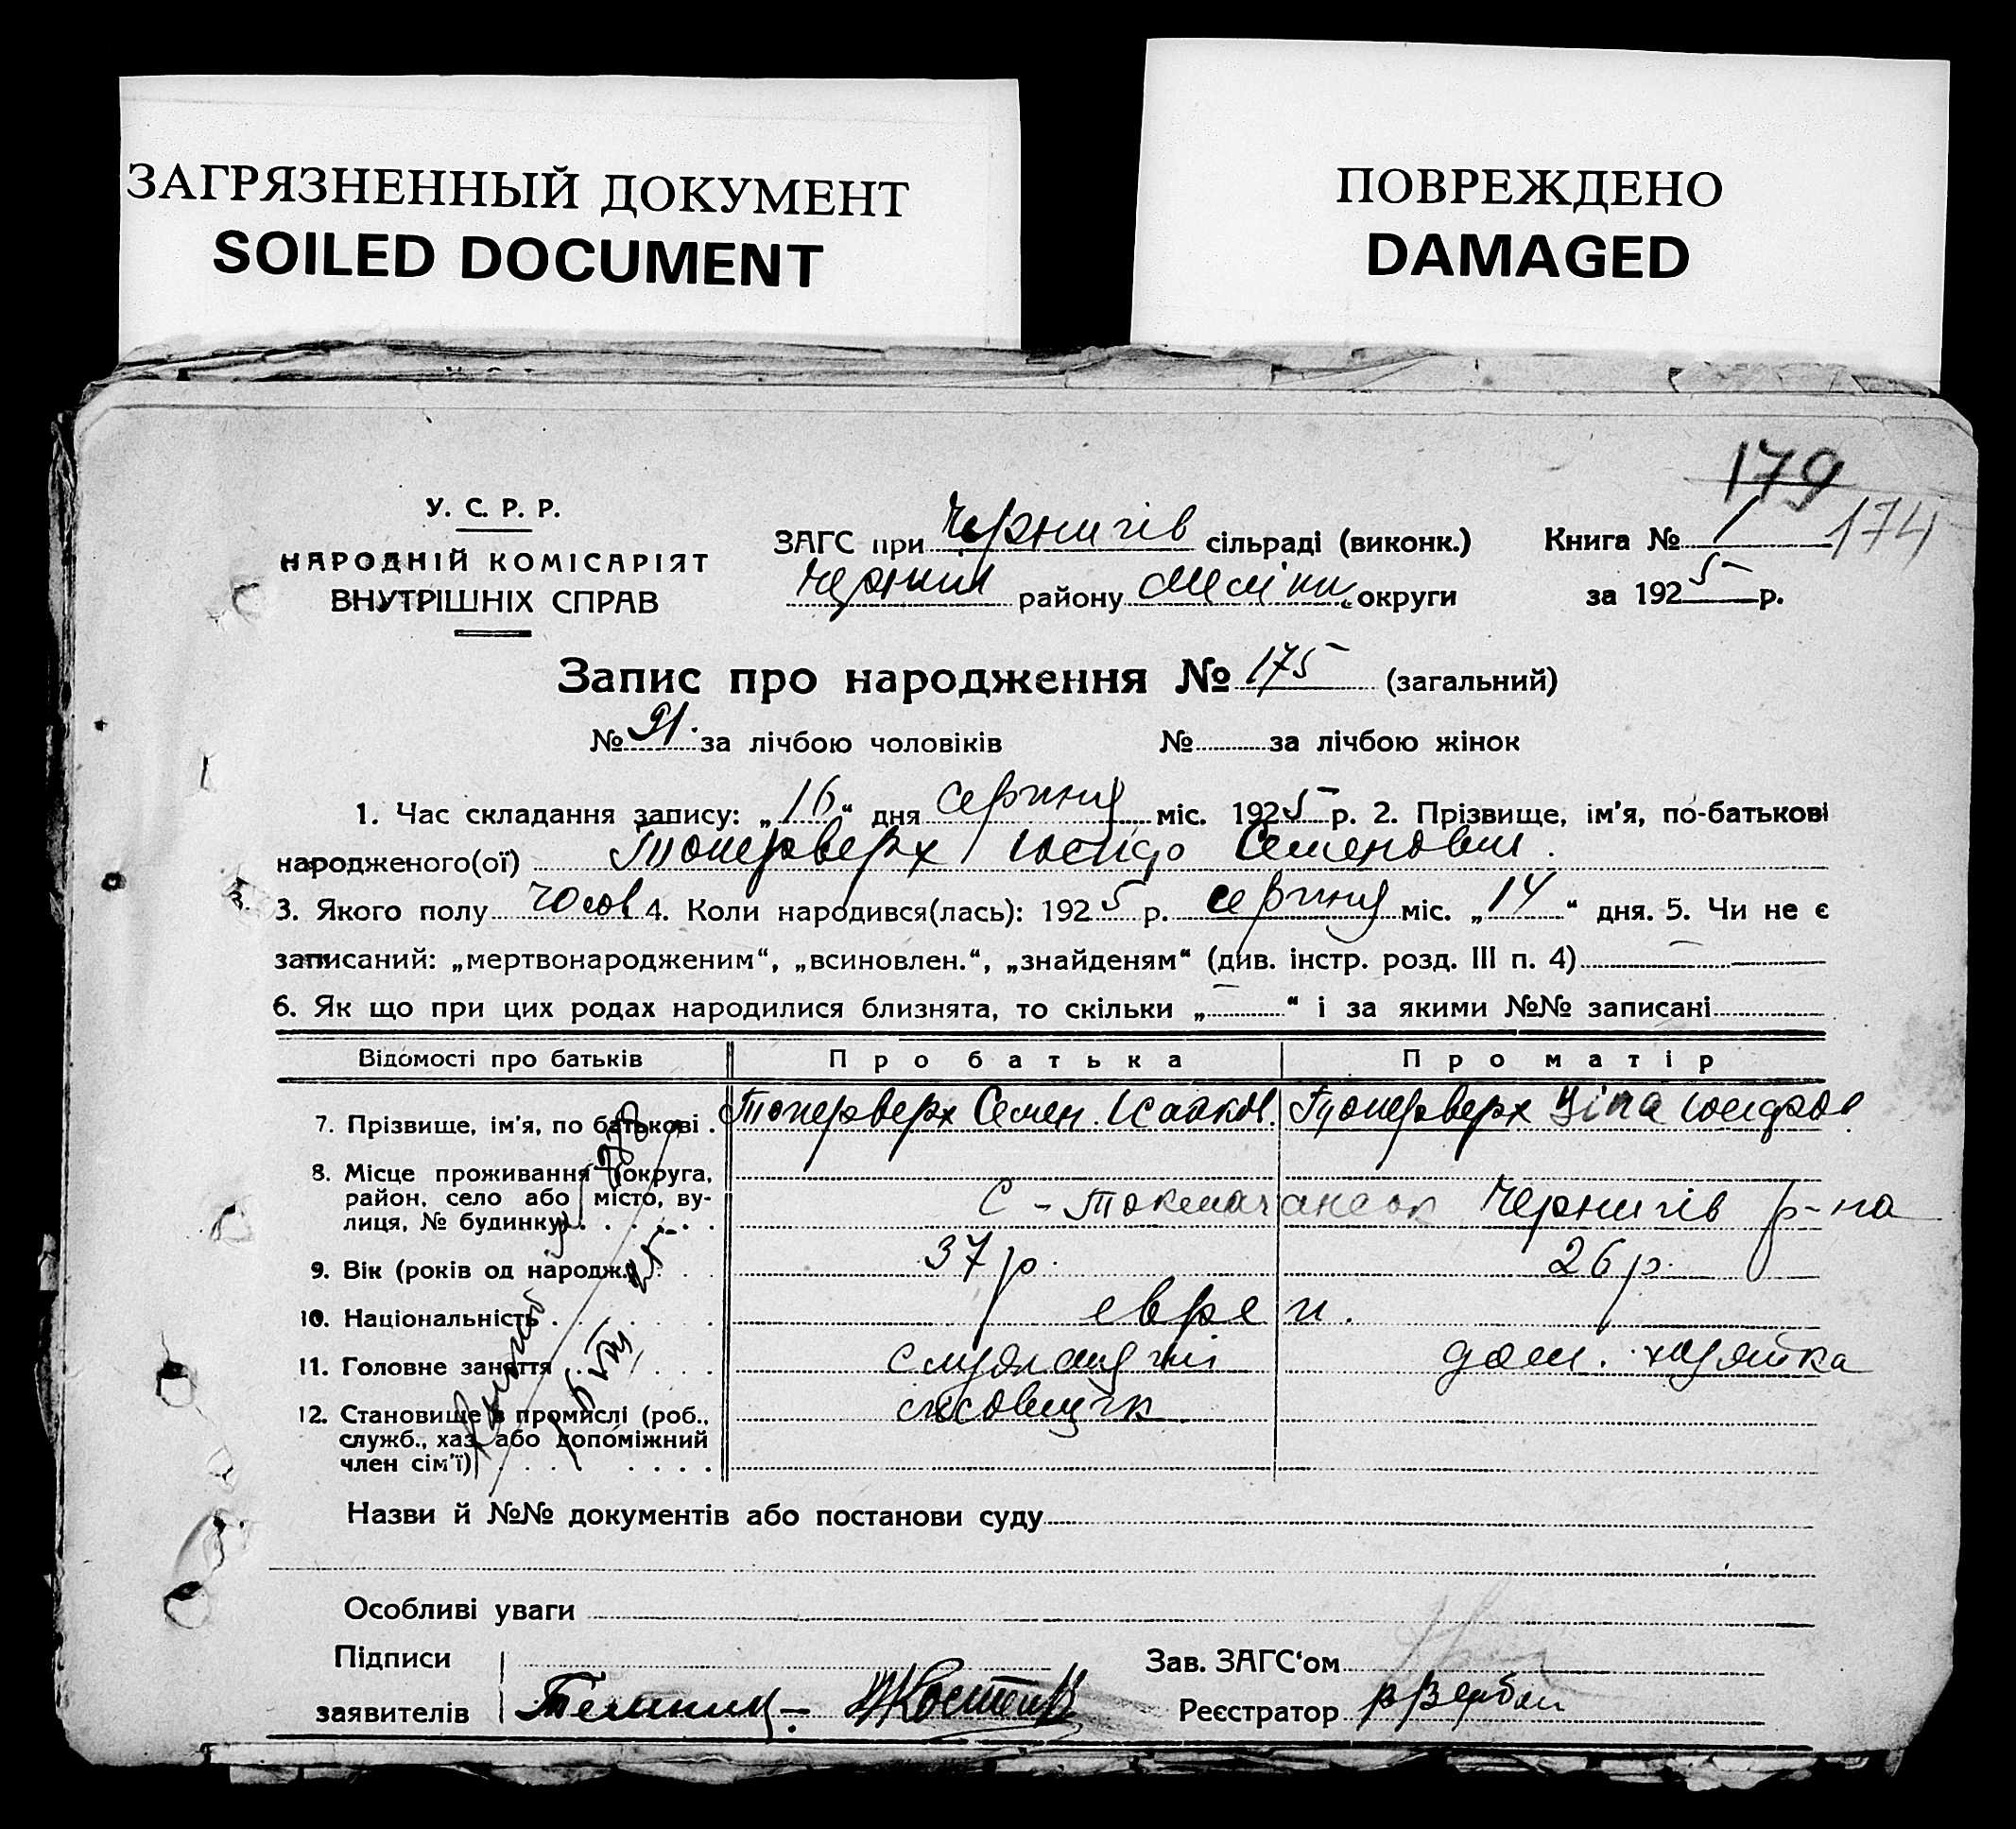 ЗАГРЯЗНЕННЫЙ ДОКУМЕНТ
SOILED DOCUMENT
ПОВРЕЖДЕНО
DAMAGED
179
174
У. С. Р. Р.
НАРОДНІЙ КОМІСАРІЯТ
ВНУТРІШНІХ СПРАВ
ЗАГС при Чернигів сільраді (виконк.)
району округи
Книга № 1
за 1925 р.
Запис про народження № 175 (загальний)
№ 91. за лічбою чоловіків № за лічбою жінок
1. Час складання запису: „16“ дня серпня міс. 1925 р. 2. Прізвище, ім'я, по-батькові
народженого(ої) Топерверх Семенович.
3. Якого полу чолов 4. Коли народився(лась): 1925 р. серпня міс. „14“ дня. 5. Чи не є
записаний: „мертвонародженим“, „всиновлен.“, „знайденям“ (див. інстр. розд. III п. 4) —
6. Як що при цих родах народилися близнята, то скільки „ — “ і за якими №№ записані
Відомості про батьків Про батька Про матір
7. Прізвище, ім'я, по батькові . Топерверх Семен. Исааков. Топерверх Ціпа
8. Місце проживання (округа,
район, село або місто, ву-
лиця, № будинку) . . . . . . С - Чернигів р-на
9. Вік (років од народж.) . . . 37 р. 26 р.
10. Національність . . . . . . евреи.
11. Головне заняття . . . . . дом. хозяйка
12. Становище в промислі (роб.,
служб., хаз. або допоміжний
член сім'ї) . . . . . . . .
Назви й №№ документів або постанови суду
Особливі уваги
Підписи
заявителів
Зав. ЗАГС'ом
Реєстратор